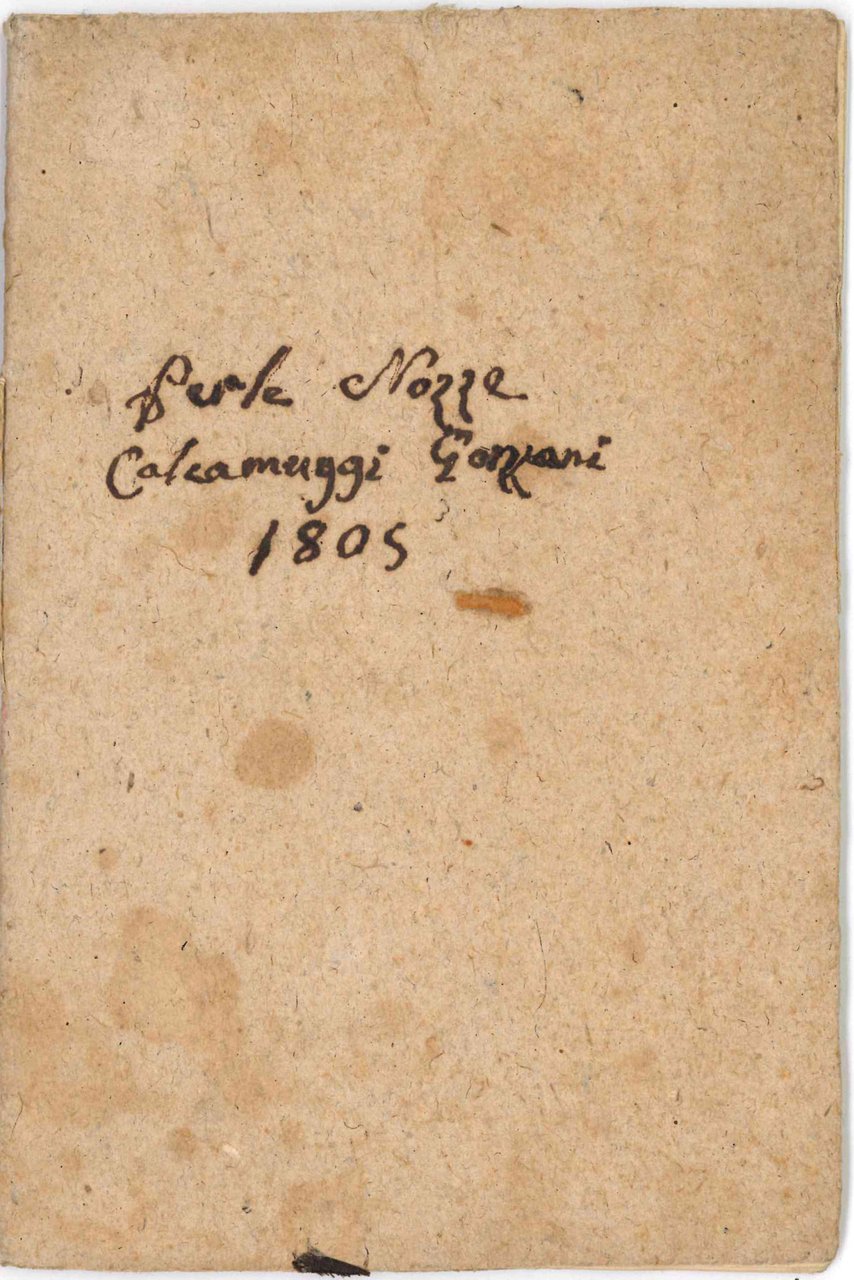 Per le Nozze
Calcamuggi Gonzani
1805